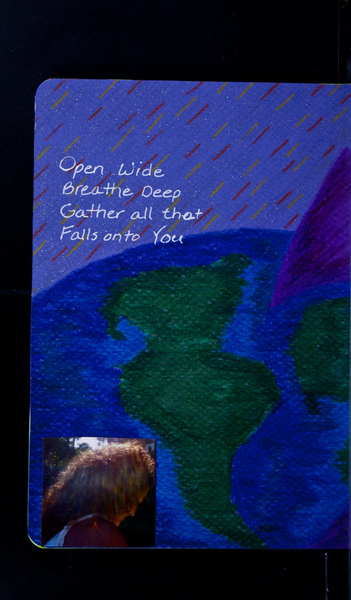 Open Wide
Breathe Deep
Gather all that
Falls onto You